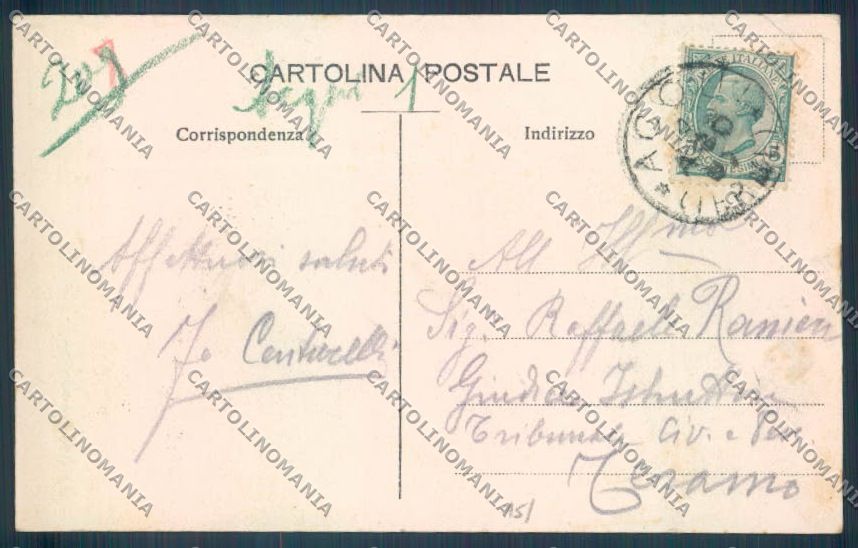 209
7
CARTOLINA POSTALE
1
Corrispondenza
Indirizzo
Affettuosi saluti
Centurelli
All' Ill.mo
Sig. Raffaele Ranieri
Giudice Istruttore
Tribunale Civ. e Pen.
Teramo
15/
CARTOLINOMANIA